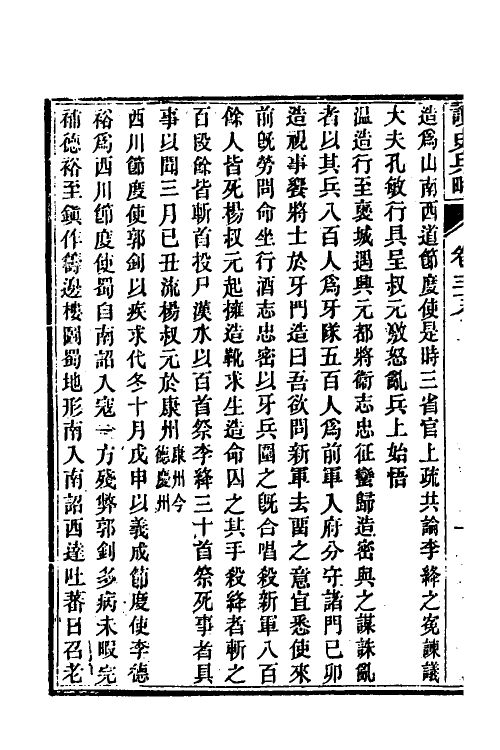 讀史兵略 卷三
造爲山南西道節度使是時三省官上疏共論李絳之寃諫議
大夫孔敏行具呈叔元激怒亂兵上始悟
温造行至褒城遇興元都將衛志忠征蠻歸造密與之謀誅亂
者以其兵八百人爲牙隊五百人爲前軍入府分守諸門已卯
造視事饗將士於牙門造曰吾欲問新軍去畱之意宜悉使來
前旣勞問命坐行酒志忠密以牙兵圍之旣合唱殺新軍八百
餘人皆死楊叔元起擁造靴求生造命囚之其手殺絳者斬之
百段餘皆斬首投尸漢水以百首祭李絳三十首祭死事者具
事以聞三月已丑流楊叔元於康州康州今德慶州
西川節度使郭釗以疾求代冬十月戊申以義成節度使李德
裕爲西川節度使蜀自南詔入寇一方殘弊郭釗多病未暇完
補德裕至鎭作籌邊樓圖蜀地形南入南詔西達吐蕃日召老